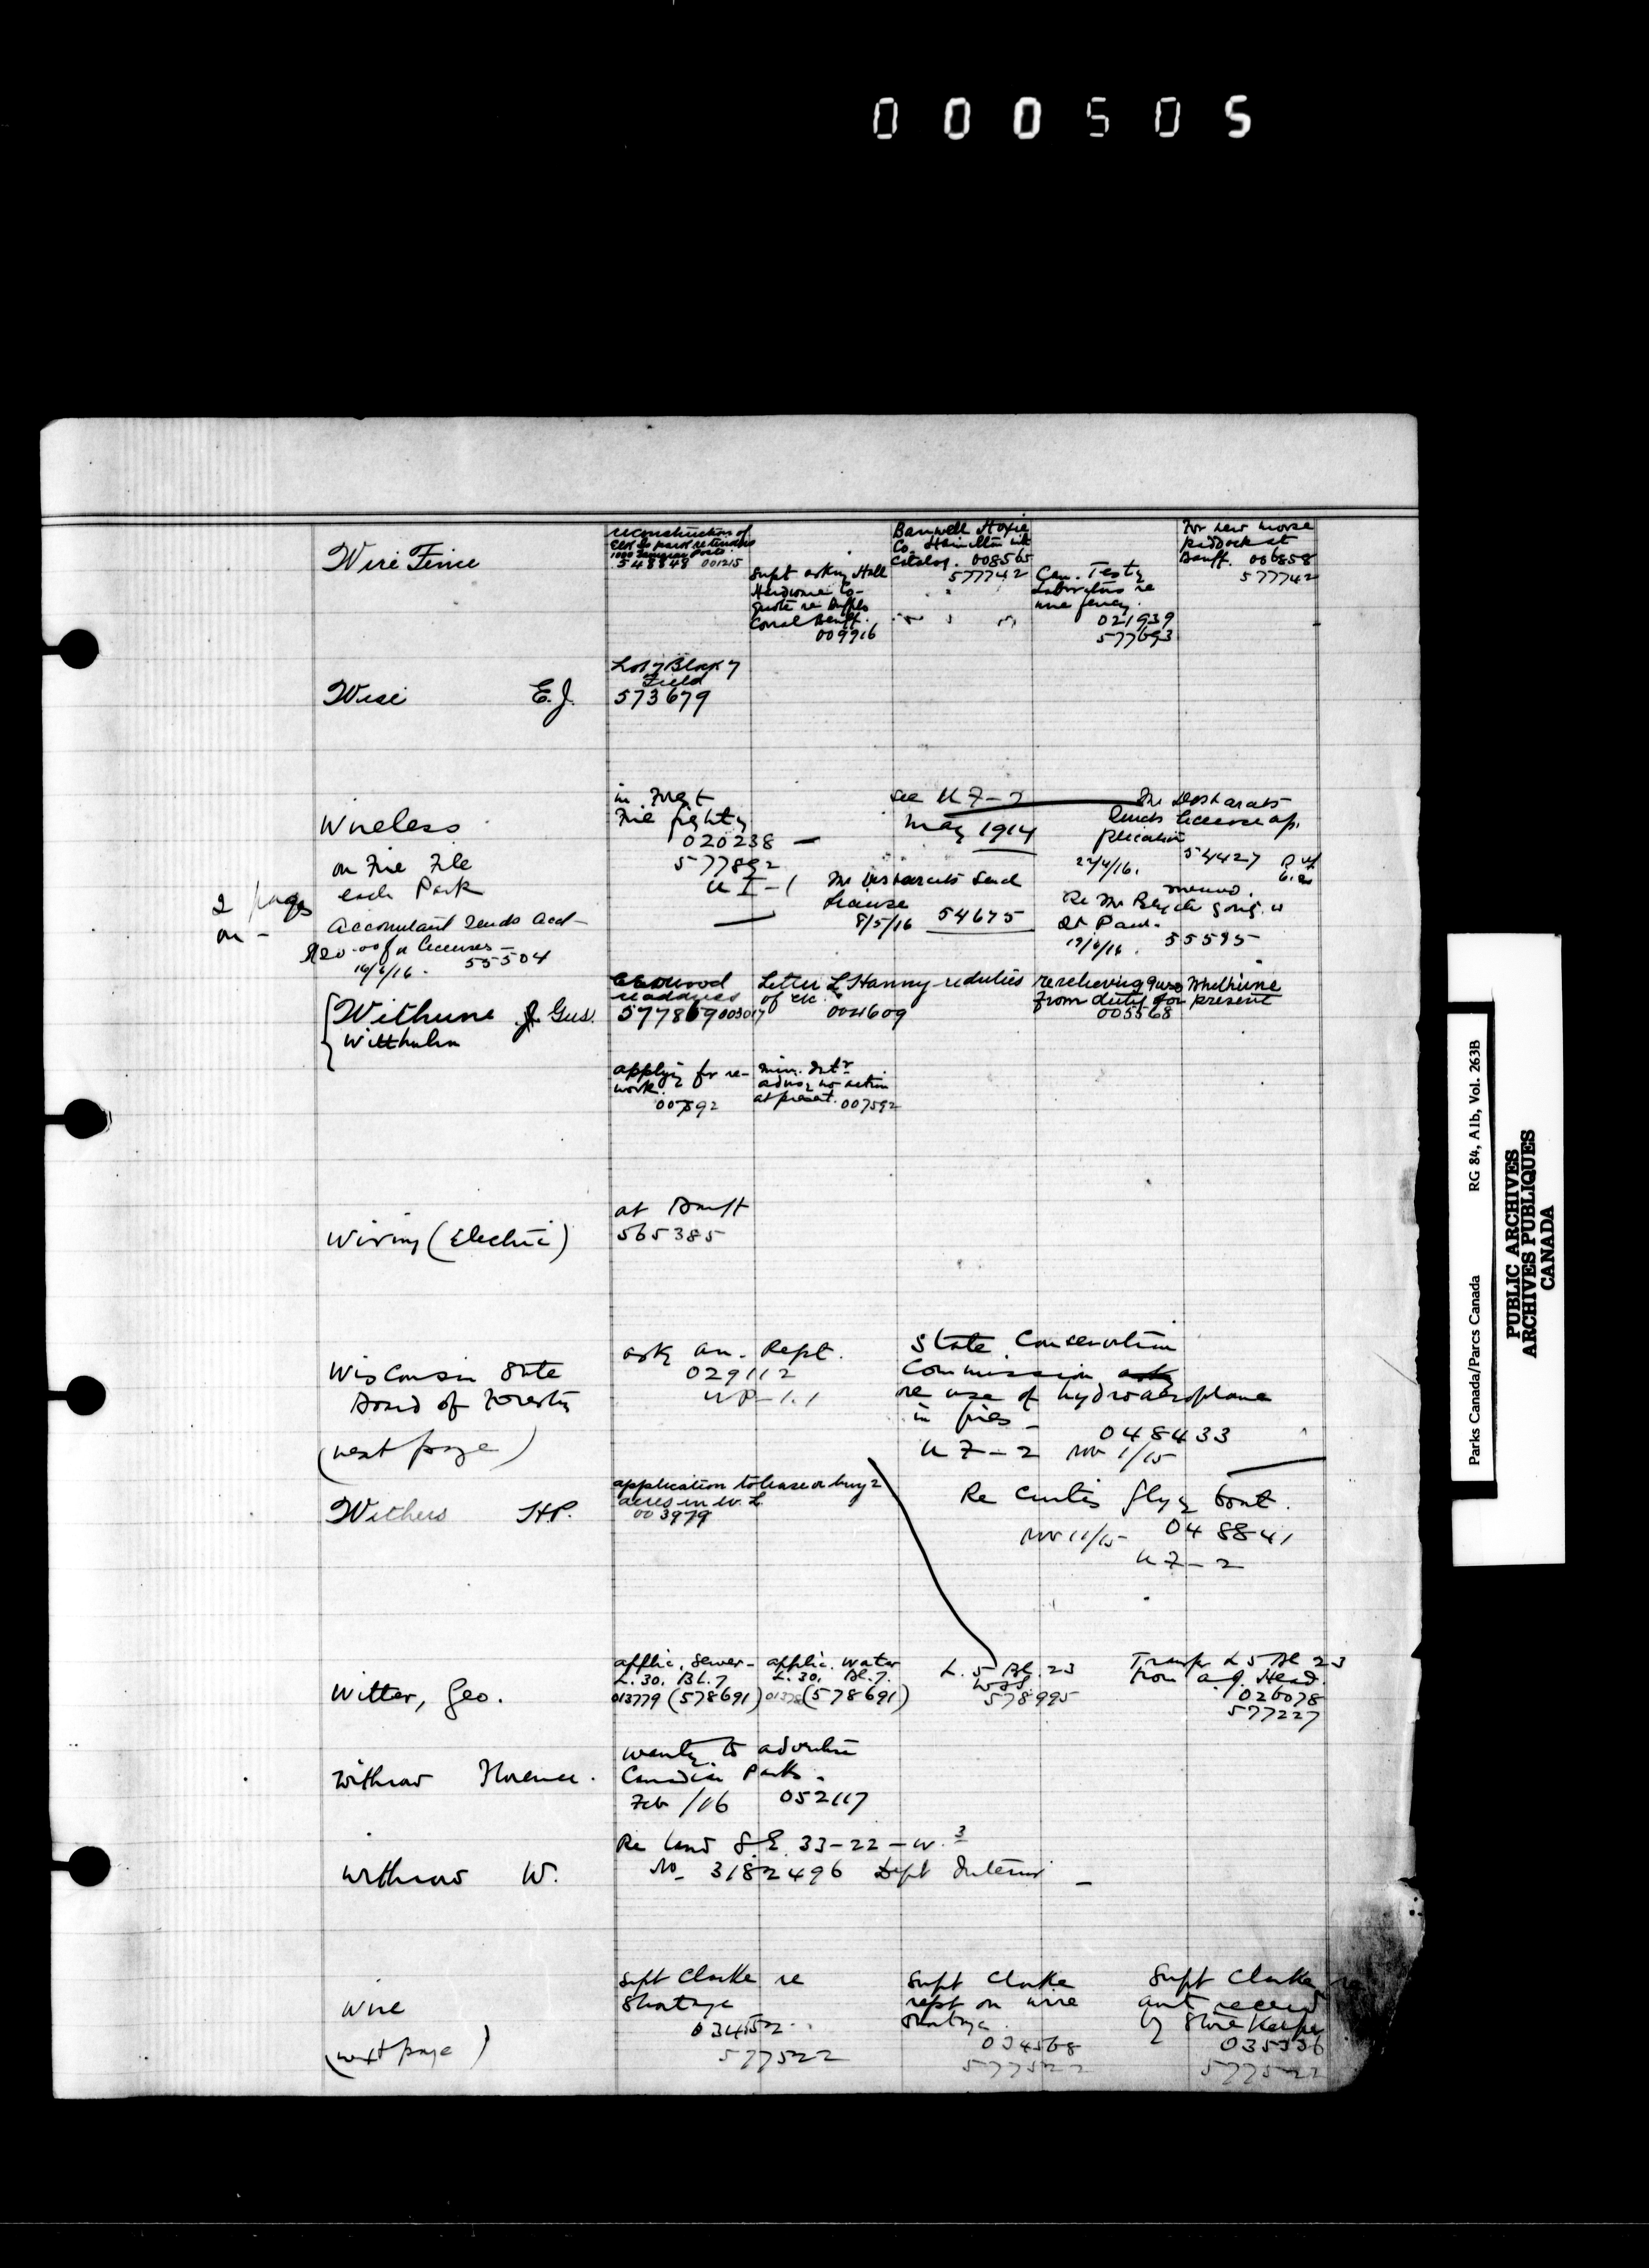 000505
Wire Fence
reconstruction of
548848 001215
Supt asking Hall
Hardware Co.
quote re Buffalo
Corral Banff.
009916
Banwell Hoxie
Co. Hamilton
Catalog. 008565
577742
Can. Testg
Laboratories re
wire fencg.
021939
577693
For new moose
paddock at
Banff. 006858
577742
Wise E.J.
Lot 7 Block 7
Field
573679
Wireless
on Fire File
each Park
2 pages
on -
Accountant sends acct
$20.00 for licenses -
16/6/16. 55504
in Forest
Fire fightg
020238 -
577892
U I-1
see U 7-2
May 1914
Mr Desbarats send
license
8/5/16 54675
Mr Desbarats
sends license ap-
plication
22/4/16. 54427
Re Mr
memo.
St Paul.
19/6/16. 55595
Withune J Gus.
Witthuhn
readdress
577869 003017
Letter L Hanny re duties
of etc.
004609
re releiving Gus Whithune
from duty for present
005568
applying for re-
work.
007592
Min. Intr
advisg no action
at present. 007592
Wiring (Electric)
at Banff
565385
Wisconsin State
Board of Forestry
(next page)
ask an. Rept.
029112
UP-1.1
State Conservation
Commission ask
re use of hydroaeroplane
in fires -
048433
U 7-2 Nov 1/15
Re Curtis flyg boat.
Nov 11/15 048841
U 7-2
Withers H.P.
application to lease or buy 2
acres in W.L.
003979
Witter, Geo.
applic. Sewer-
L.30. Bl.7
013779 (578691)
applic. Water
L.30. Bl.7.
(578691)
L. 5 Bl. 23
578995
Transfr L 5 Bl 23
from A.J. Head.
026078
577227
Withrow Florence.
wantg to advertise
Canadian Parks.
Feb /16 052117
Withrow W.
Re land S.E. 33-22-W.3
No. 3182496 Dept Interior -
Wire
(next page)
Supt Clarke re
Shortage
034552
577522
Supt Clarke
rept on wire
shortage.
034568
577522
Supt Clarke re
amt received
by Store Keeper
035336
577522
Parks Canada/Parcs Canada RG 84, A1b, Vol. 263B
PUBLIC ARCHIVES
ARCHIVES PUBLIQUES
CANADA